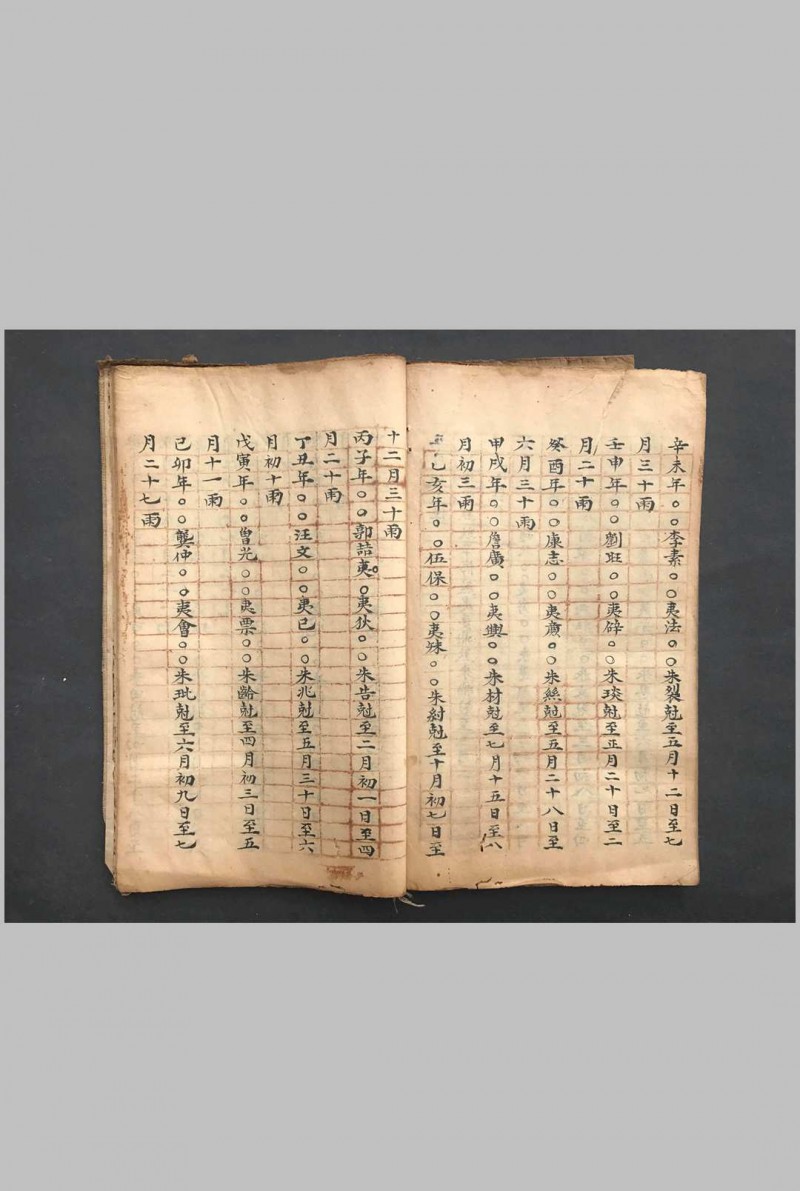 辛未年○○李素○○夷法○○朱裂尅至五月十二日至七
月三十雨
壬申年○○劉旺○○夷碎○○朱琰尅至正月二十日至二
月二十雨
癸酉年○○康志○○夷廣○○朱絲尅至五月二十八日至
六月三十雨
甲戌年○○詹廣○○夷興○○朱材尅至七月十五日至八
月初三雨
乙亥年○○伍保○○夷殊○○朱紂尅至十月初七日至
十二月三十雨
丙子年○○郭喆夷○○夷狄○○朱告尅至二月初一日至四
月二十雨
丁丑年○○汪文○○夷已○○朱兆尅至五月三十日至六
月初十雨
戊寅年○○曾光○○夷票○○朱齡尅至四月初三日至五
月十一雨
己卯年○○龔仲○○夷會○○朱玭尅至六月初九日至七
月二十七雨